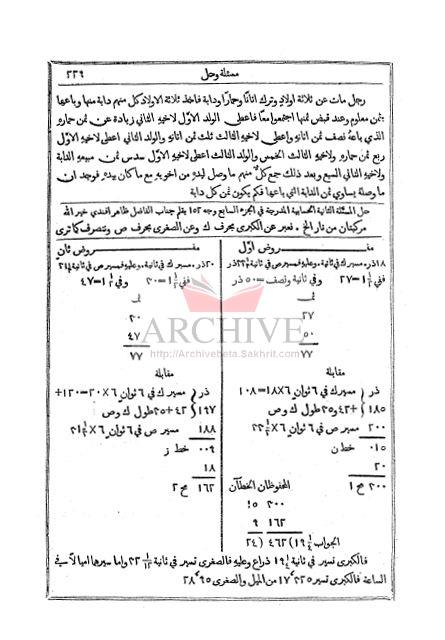 ٢٢٩ مسئلة وحل
رجل مات عن ثلاثة اولاد وترك اتانًا وحمارًا ودابة فاخذ ثلاثة الاولاد كل منهم دابة منها وباعها
بثمن معلوم وعند قبض ثمنها اجتمعوا معًا فاعطى الولد الاوّل لاخيهِ الثاني زيادة عن ثمن حماره
الذي باعهُ نصف ثمن اتانهِ واعطى لاخيهِ الثالث ثلث ثمن اتانهِ والولد الثاني اعطى لاخيهِ الاوّل
ربع ثمن حماره ولاخيهِ الثالث الخمس والولد الثالث اعطى لاخيهِ الاوّل سدس ثمن مبيعهِ الدابة
ولاخيهِ الثاني السبع وبعد ذلك جمع كلٌّ منهم ما وصل ليدهِ من اخويهِ مع ما كان بيدهِ فوجد ان
ما وصلهُ يساوي ثمن الدابة التي باعها فكم يكون ثمن كل دابة
حل المسئلة الثانية الحسابية المدرجة في الجزء السابع وجه ١٥٢ بقلم جناب الفاضل ظاهر افندي خير الله
مركبتان من نار الخ. نعبر عن الكبرى بحرف ك وعن الصغرى بحرف ص ونتصرف كما ترى
مفروض اوّل
١٨ ذر. مسير ك في ثانية. وعليهِ فمسير ص في ثانية ذر
ففي ١½=٢٧ وفي ثانية ونصف=٥٠ ذر
٢٧
٥٠
٧٧
مقابلة
ذر مسير ك في ٦ ثوانٍ ٦×١٨=١٠٨
١٨٥ +٤٢و٣٥ طول ك و ص
٢٠٠ مسير ص في ٦ ثوانٍ
٠١٥ خط ن
٢٠
٣٠٠ مح ١
مفروض ثانٍ
٢٠ ذر. مسير ك في ثانية. وعليهِ فمسير ص في ثانية
ففي ١½=٣٠ وفي ١½=٤٧
٣٠
٤٧
٧٧
مقابلة
ذر مسير ك في ٦ ثوانٍ ٦×٢٠=١٢٠+
١٩٧ ٤٢+٣٥ طول ك و ص
١٨٨ مسير ص في ٦ ثوانٍ
٠٠٩ خط ز
١٨
١٦٢ مح ٢
المحفوظان الخطآن
٣٠٠ ١٥
١٦٢ ٩
الجواب ١٩¼) ٤٦٢ (٢٤
فالكبرى تسير في ثانية ١٩¼ ذراع وعليهِ فالصغرى تسير في ثانية واما سيرها اميالًا في
الساعة فالكبرى تسير من الميل والصغرى
ARCHIVE
http://Archivebeta.Sakhrit.com